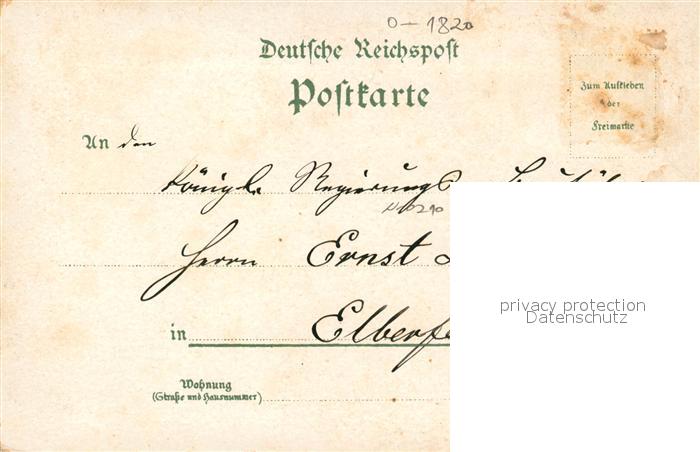 0-1820
Deutsche Reichspost
Postkarte
Zum Aufkleben
der
Freimarke
An den
Königl. Regierungs
Herrn Ernst
in Elberfe
privacy protection
Datenschutz
Wohnung
(Straße und Hausnummer)